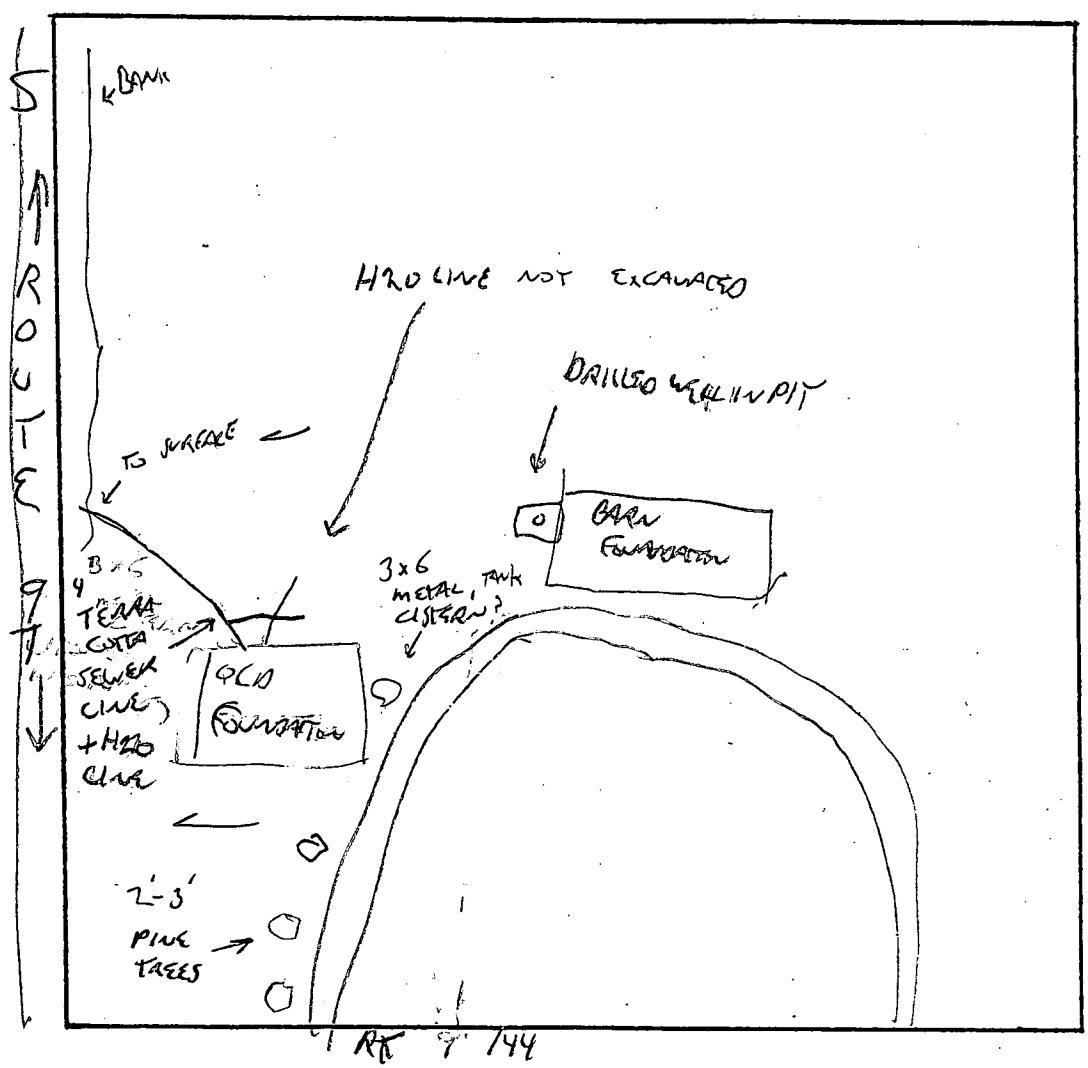 BANK
S ↑ ROUTE 97 ↓
H20 LINE NOT EXCAVATED
DRILLED WELL IN PIT
TO SURFACE
BARN
FOUNDATION
3x6
METAL, TANK
CISTERN?
4"
TERRA
COTTA
SEWER
LINE
+ H20
LINE
OLD
FOUNDATION
2'-3'
PINE
TREES
RT 9 /44